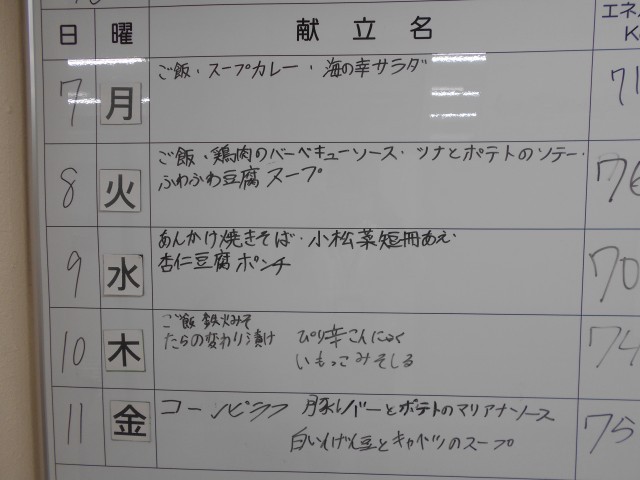 日 曜 献立名 エネル
K
7 月 ご飯・スープカレー・海の幸サラダ 71
8 火 ご飯・鶏肉のバーベキューソース・ツナとポテトのソテー・ 76
ふわふわ豆腐スープ
9 水 あんかけ焼きそば・小松菜短冊あえ 70
杏仁豆腐ポンチ
10 木 ご飯 鉄火みそ 74
たらの変わり漬け ぴり辛こんにゃく
いもっこみそしる
11 金 コーンピラフ 豚レバーとポテトのマリアナソース 75
白いんげん豆とキャベツのスープ